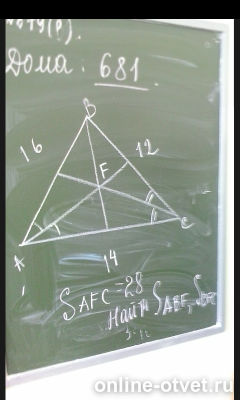 Дома: 681
B
16
12
F
C
A
14
SAFC=28
Найти SABF,
online-otvet.ru